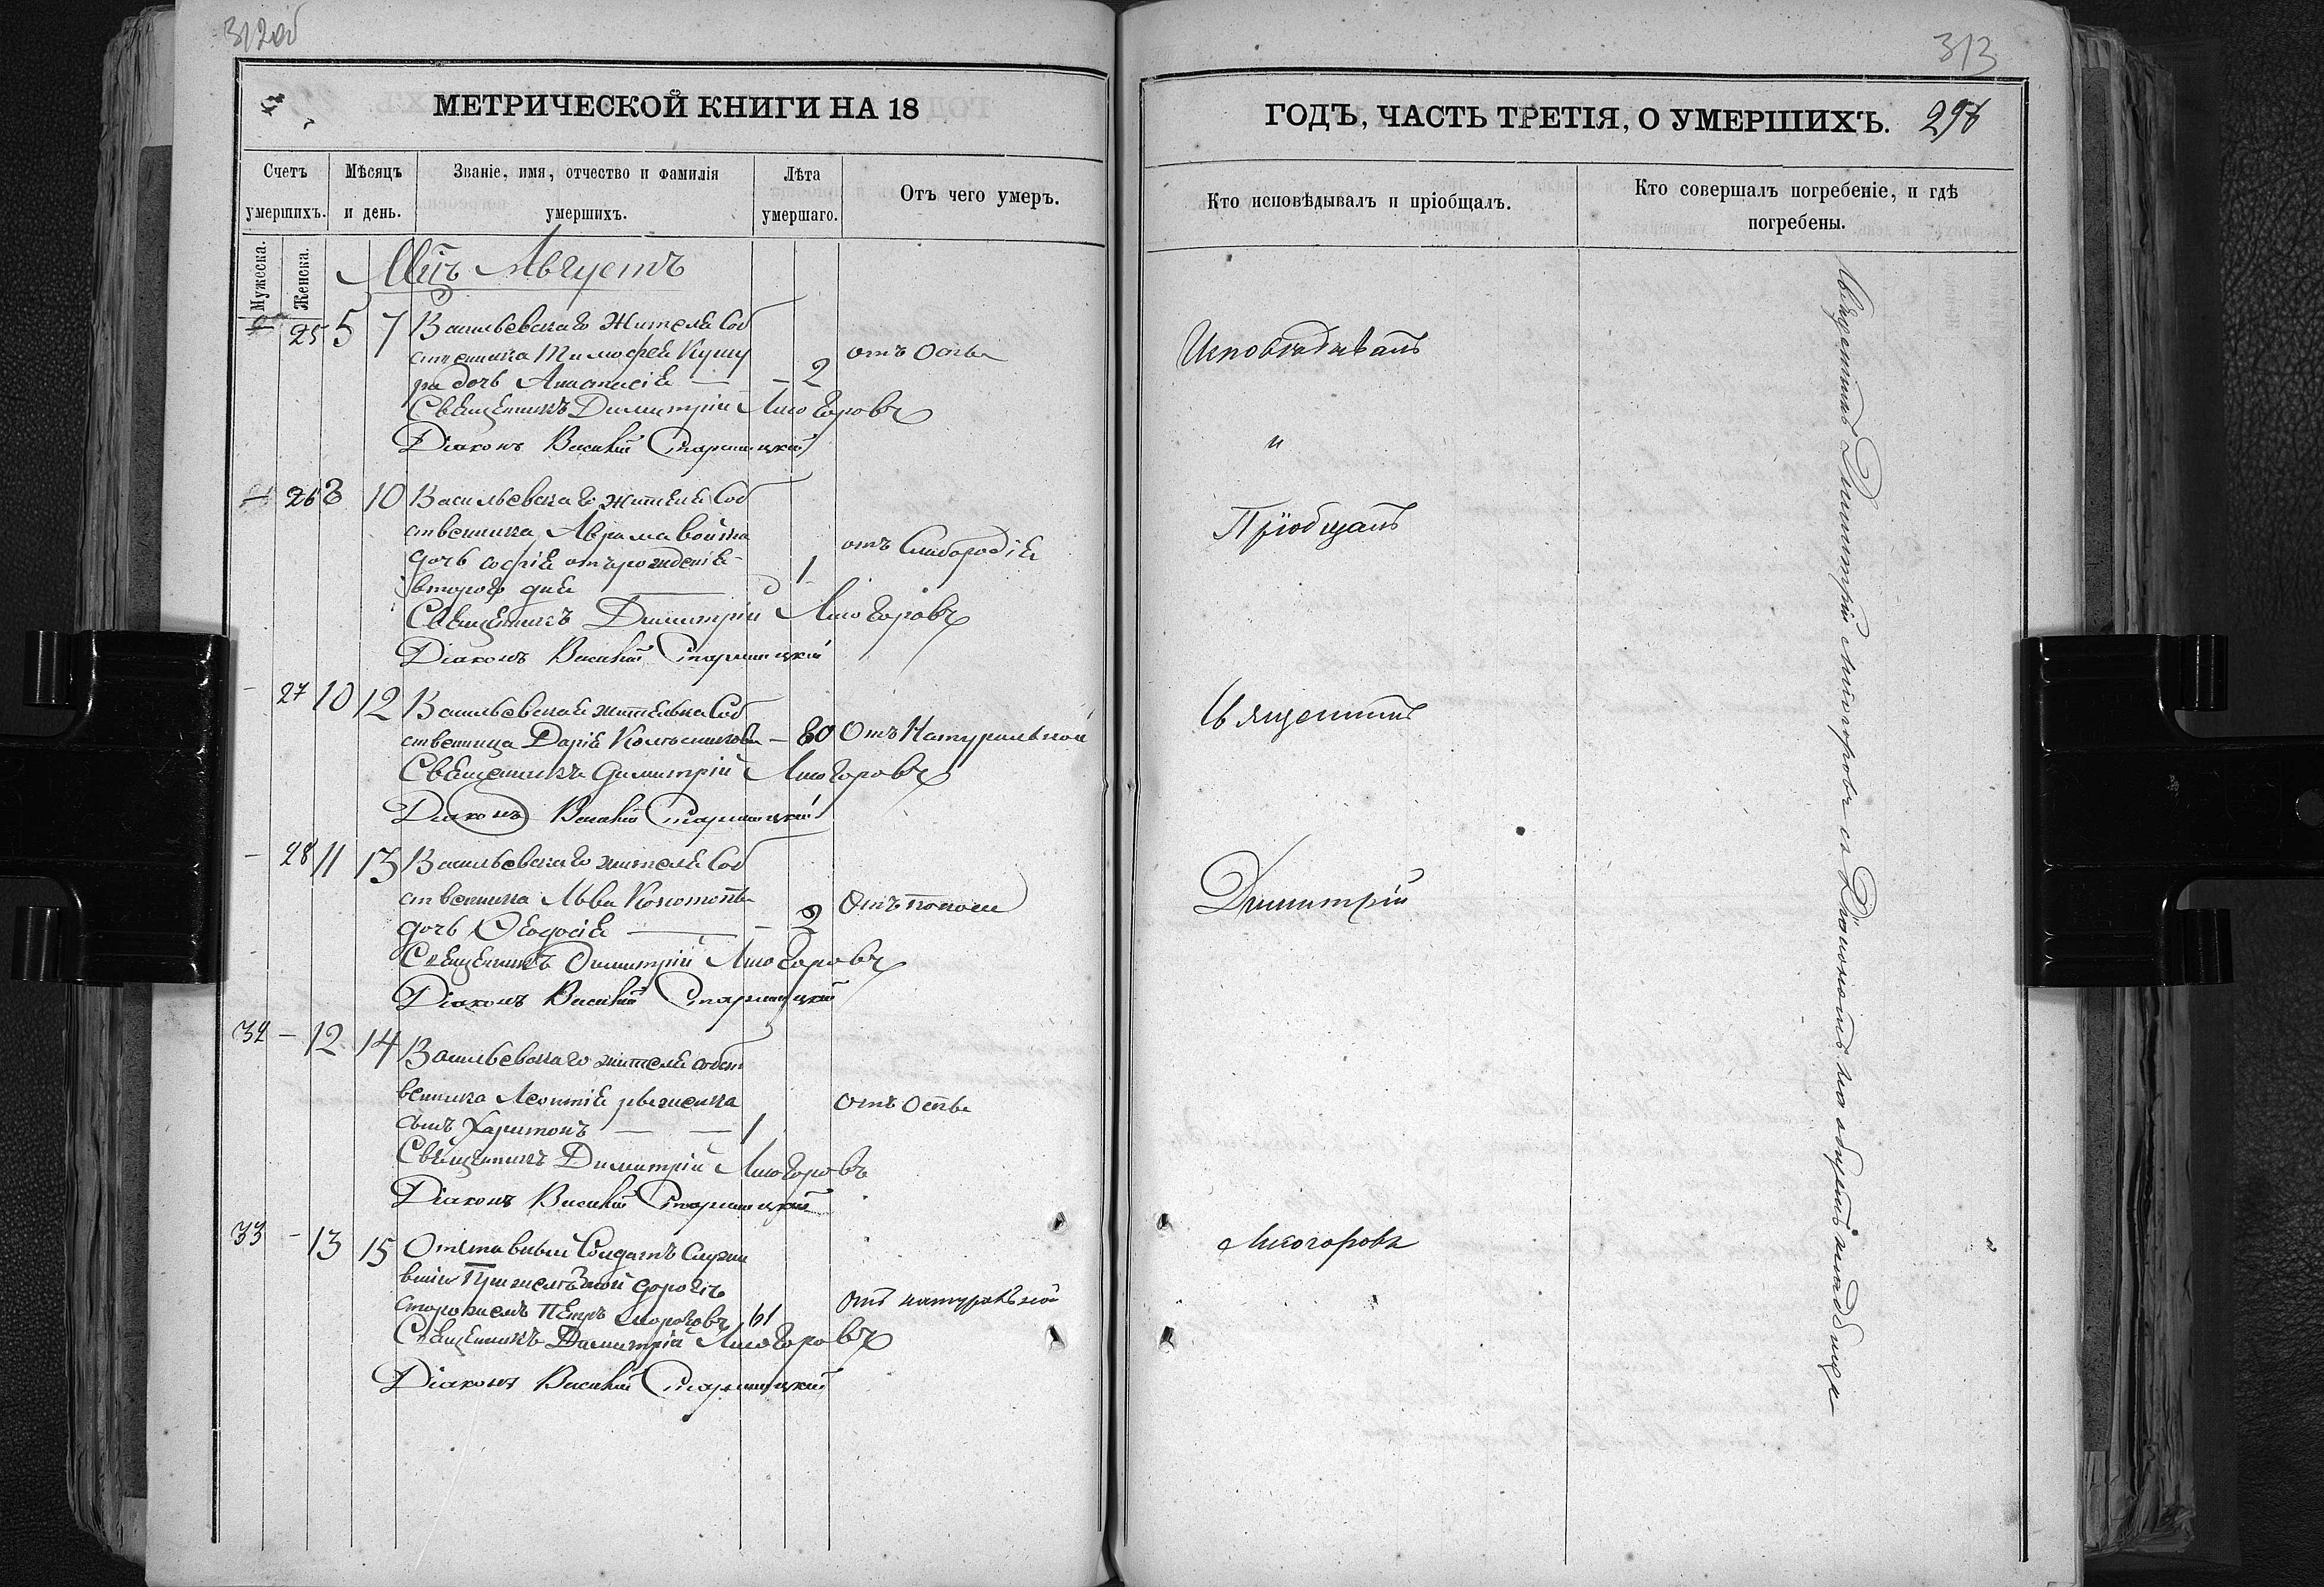 312об
МЕТРИЧЕСКОЙ КНИГИ НА 18
Счетъ умершихъ.
Мѣсяцъ и день.
Званіе, имя, отчество и фамилія умершихъ.
Лѣта умершаго.
Отъ чего умеръ.
Мужеска.
Женска.
Мцъ Августъ
25 5 7 Васильевскаго Жителя Соб
ственника Тимофея
дочь Анастасія — 2 отъ Оспы
Священникъ Димитрій Лисогоровъ
Діаконъ Василій Старицкій
26 8 10 Васильевскаго жителя Соб
ственника Аврама
дочь Софія отъ рожденія 1 отъ Слабородія
второго дня
Священникъ Димитрій Лисогоровъ
Діаконъ Василій Старицкій
- 27 10 12 Васильевская жительна Соб
ственница Дарія — 80 Отъ Натуральной
Священникъ Димитрій Лисогоровъ
Діаконъ Василій Старицкій
- 28 11 13 Васильевскаго жителя Соб
ственника Льва
дочь Феодосія — 2
Священникъ Димитрій Лисогоровъ
Діаконъ Василій Старицкій
- 12 14 Васильевскаго жителя собст
венника Леонтія отъ Оспы
сынъ Харитонъ — 1
Священникъ Димитрій Лисогоровъ
Діаконъ Василій Старицкій
33 - 13 15 Отставный Солдатъ Служи
вшій При желѣзной дорогѣ
сторожемъ Петръ 61 отъ натуральной
Священникъ Димитрій Лисогоровъ
Діаконъ Василій Старицкій
313
ГОДЪ, ЧАСТЬ ТРЕТІЯ, О УМЕРШИХЪ. 298
Кто исповѣдывалъ и пріобщалъ.
Кто совершалъ погребеніе, и гдѣ погребены.
Исповѣдывалъ
и
Пріобщалъ
Священникъ
Димитрій
Лисогоровъ
Священникъ Димитрій Лисогоровъ съ Діакономъ на общемъ кладбищѣ